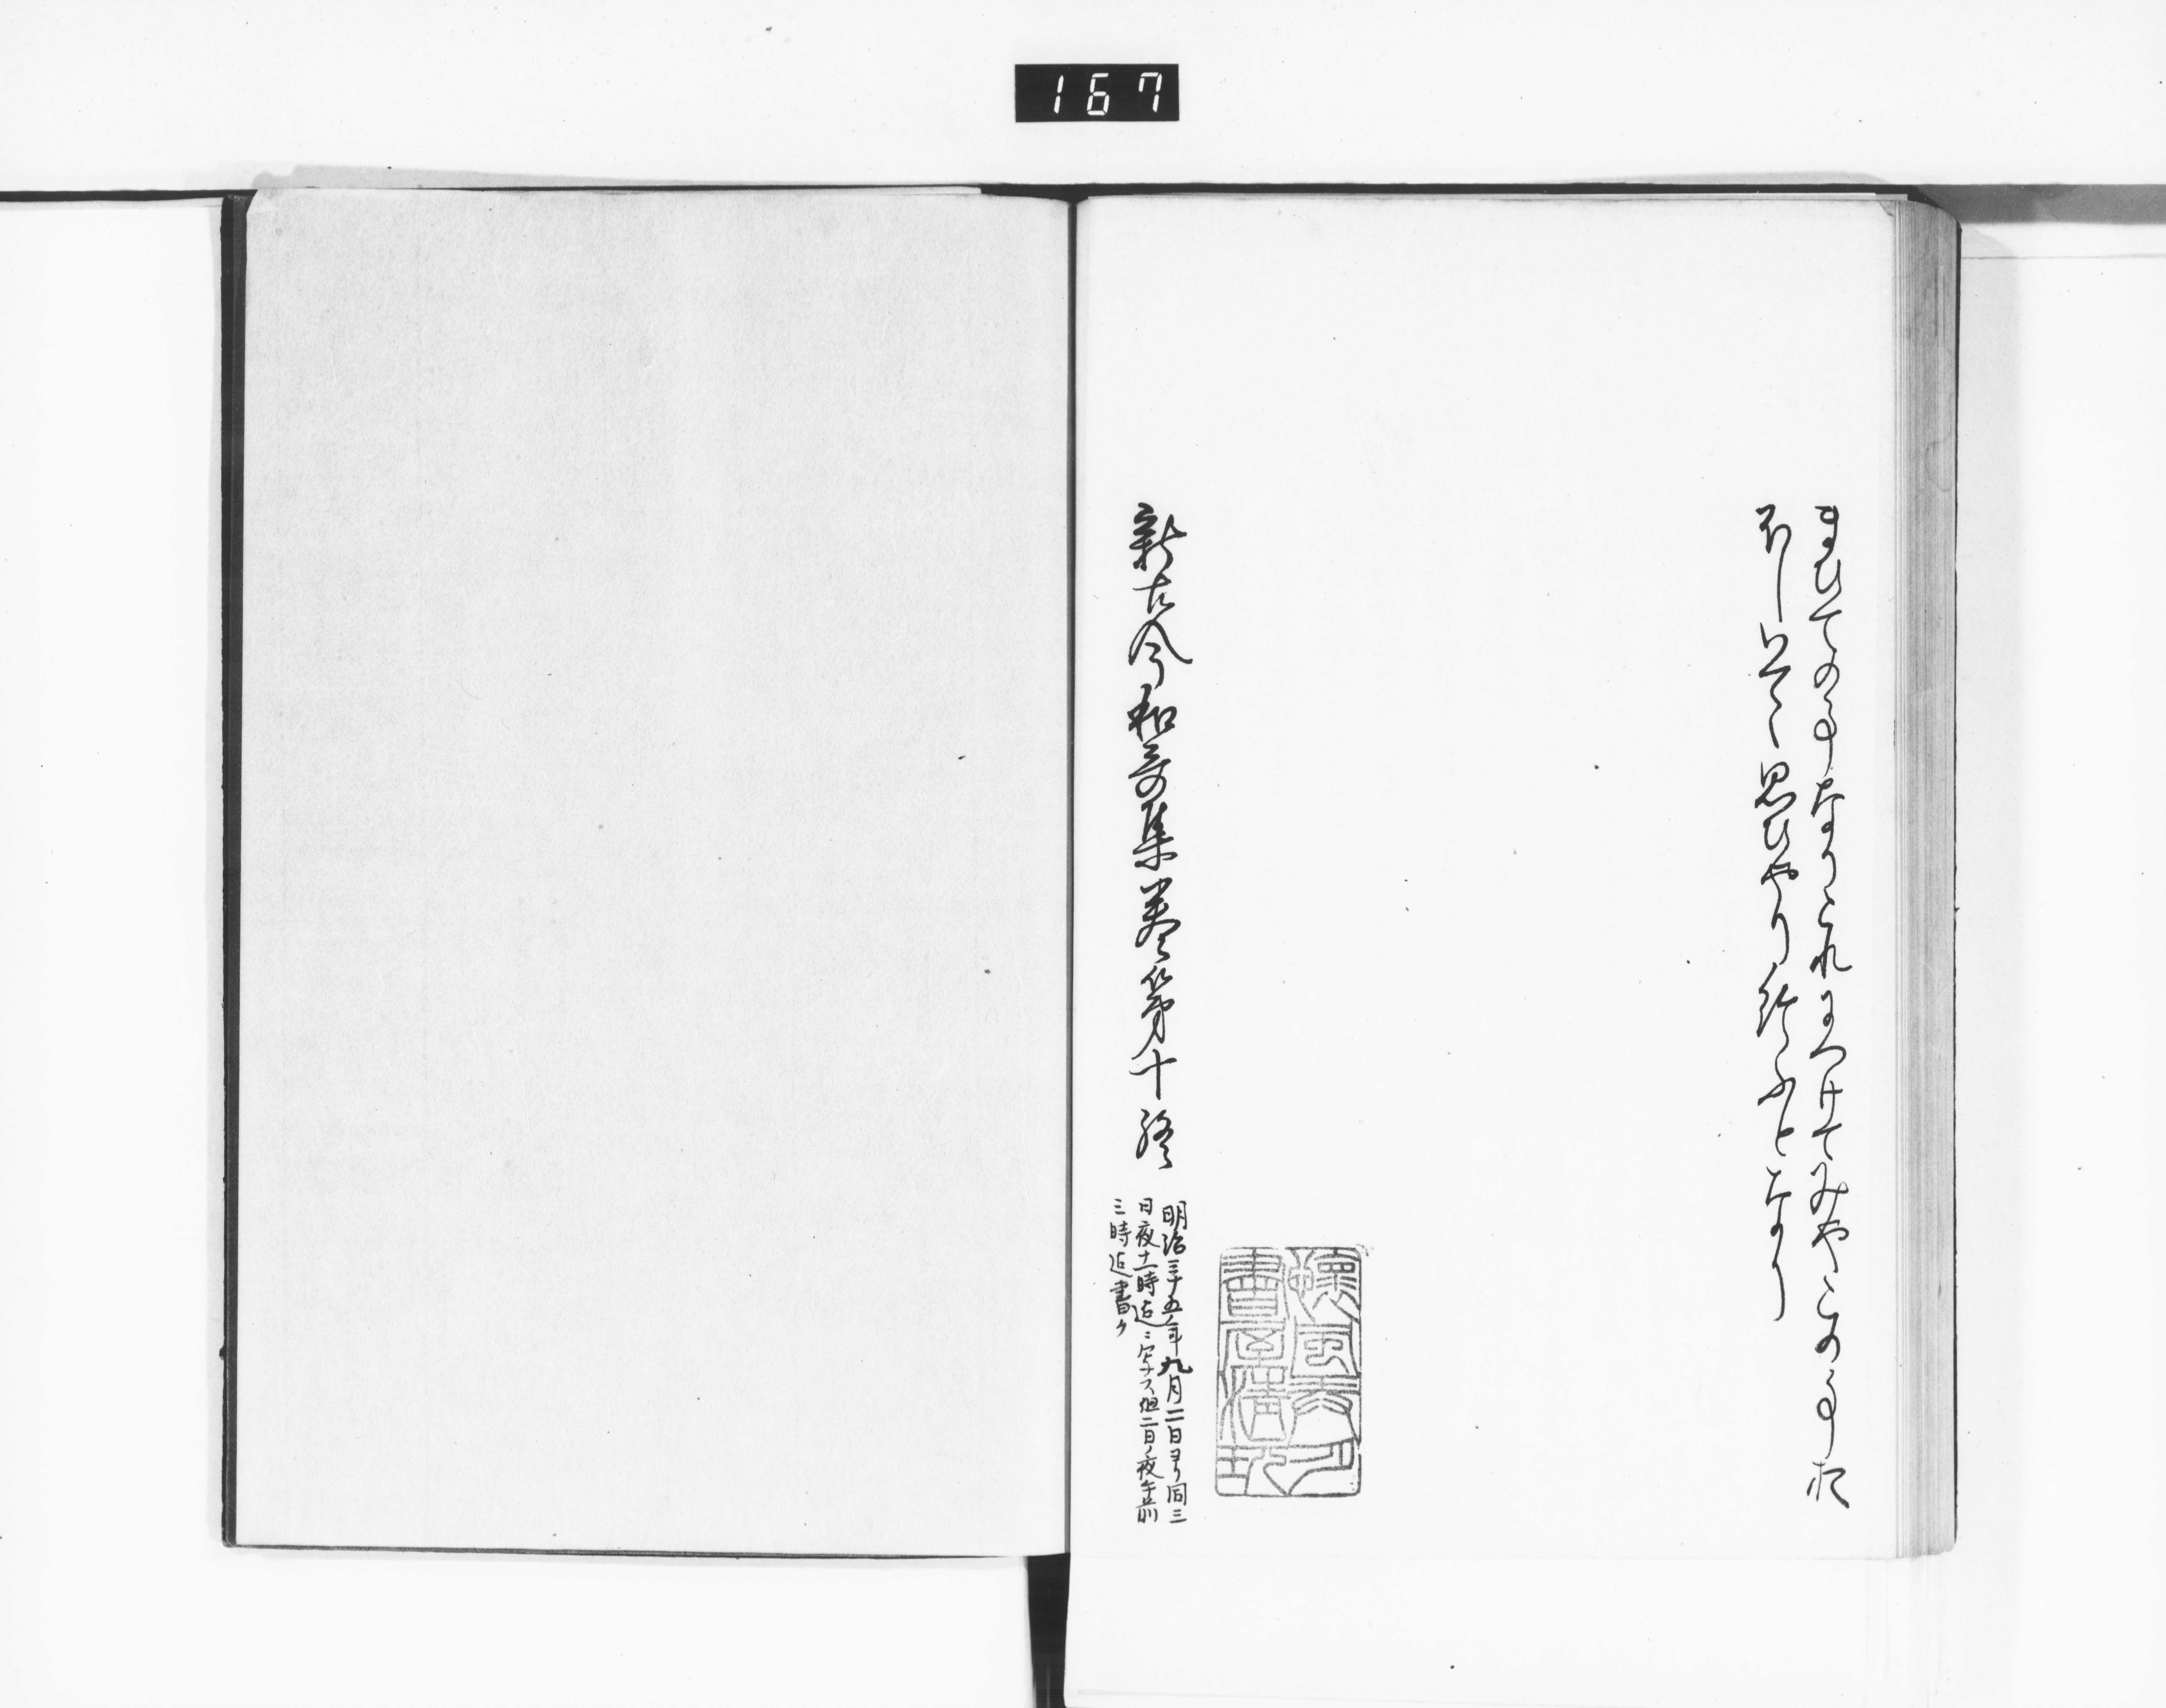 167
まひての事なりこれにつけてみやこの事お
ほしいてゝ思ひやり給ふとなり
新古今和哥集巻第十終
明治三十五年九月二日ヨリ同三
日夜十一時迠ニ写ス但二日ノ夜午前
三時迠書ク